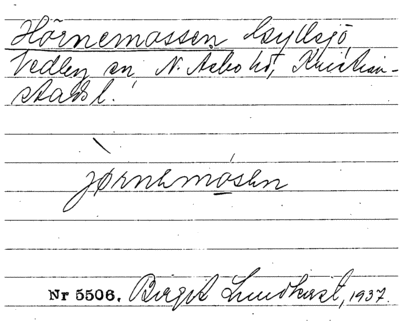 Hörnemossen Skyttsjö
Vedby sn, N. Åsbo hd, Kristian-
stads l.
jørnemósen
Nr 5506. Birgit Lundkvist, 1937.